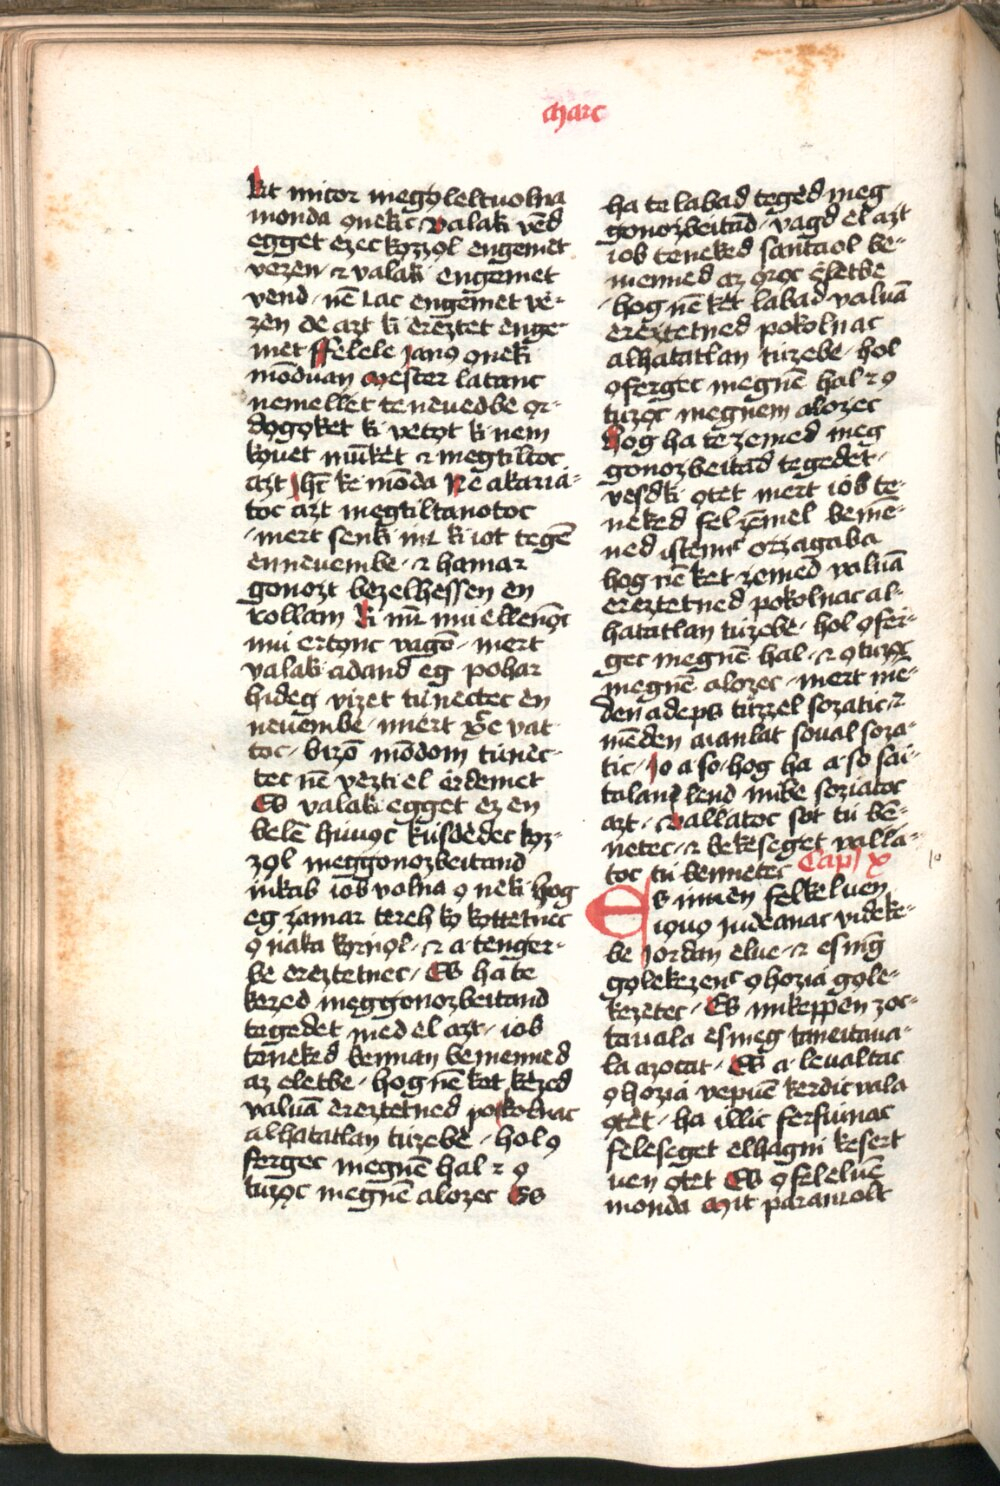 Marc
kit micor megȯleltuolna
monda ọnekic, valaki vēd
egget ezec kȯzzȯl engemet
vezen, ꞇ valaki engemet
vend, nē čac engemet ve-
zen de azt ki ereztet enge-
met ffelele janọ ọneki
mōduan mester latanc
nemellet te neuedbe ọr-
dọgọket ki vetọt ki nem
kọuet mūket ꞇ megtiltoc
azt Jhc ke mōda Ne akaria-
toc azt megtiltanotoc
mert senki nīč ki iot tegē
en neuembe, ꞇ hamar
gonozt bezelhessen en
rollam ki nīč mi ellenọc
mi ertọnc vagō, mert
valaki adand eg pohar
hideg vizet tūnectec en
neuembe, mert xc̄e vat-
toc, bizō mōdom tūnec-
tec nē vezti el erdemet
Es valaki egget ez en
belē hiuọc kūsdedec kọz-
zọl meggonozbeitand
inkab iob volna ọ neki hog
eg zamar tereh kọ kọttetnec
ọ naka kọrnọl, ꞇ a tenger-
be ereztetnec, Es ha te
kezed meggonozbeitand
tegedet med el azt, iob
teneked bennan bemenned
az eletbe, hog nē ket kezed
valuā ereztetned pokolnac
alhatatlan tūzebe, hol ọ
fergec megnē hal ꞇ ọ
tūzọc megnē alozec Es
ha te labad teged meg
gonozbeitād, vagd el azt
iob teneked santaol be-
menned az ọrọc eletbe
hog nē ket labad valuā
ereztetned pokolnac
alhatatlan tūzebe, hol
ọ fergec megnē hal ꞇ ọ
tūzọc megnem alozec
hog ha te zemed meg
gonozbeitād tegedet,
vesd ki ọtet mert iob te-
neked fel zēmel bemē-
ned istenn̄c orzagaba
hog nē ket zemed valuā
ereztetned pokolnac al-
hatatlan tūzebe, hol ọ fer-
gec megnē hal, ꞇ ọ tūzọc
megnē alozec, mert mē-
den adeps tūzzel sozatic, ꞇ
mēden aianlat soual soza-
tic, Jo a so, hog ha a so sai-
talan lend mibe soziatoc
azt, vallatoc sot tū bē-
netec, ꞇ bekeseget valla-
toc tū bennetec Cap X
10
Es innen felkeluen
iọuọ iudeanac videke-
be Jordan elue, ꞇ esmēg
gọlekezenc ọ hozia gọle-
kezetec, Es mikeppen zoc-
ta vala esmeg taneitaua-
la azocat, Es a leualtac
ọ hozia vepuē kerdic vala
ọtet, ha illic ferfiunac
feleseget elhagni kesert
uen ọtet Es ọ feleluē
monda Mit parancolt